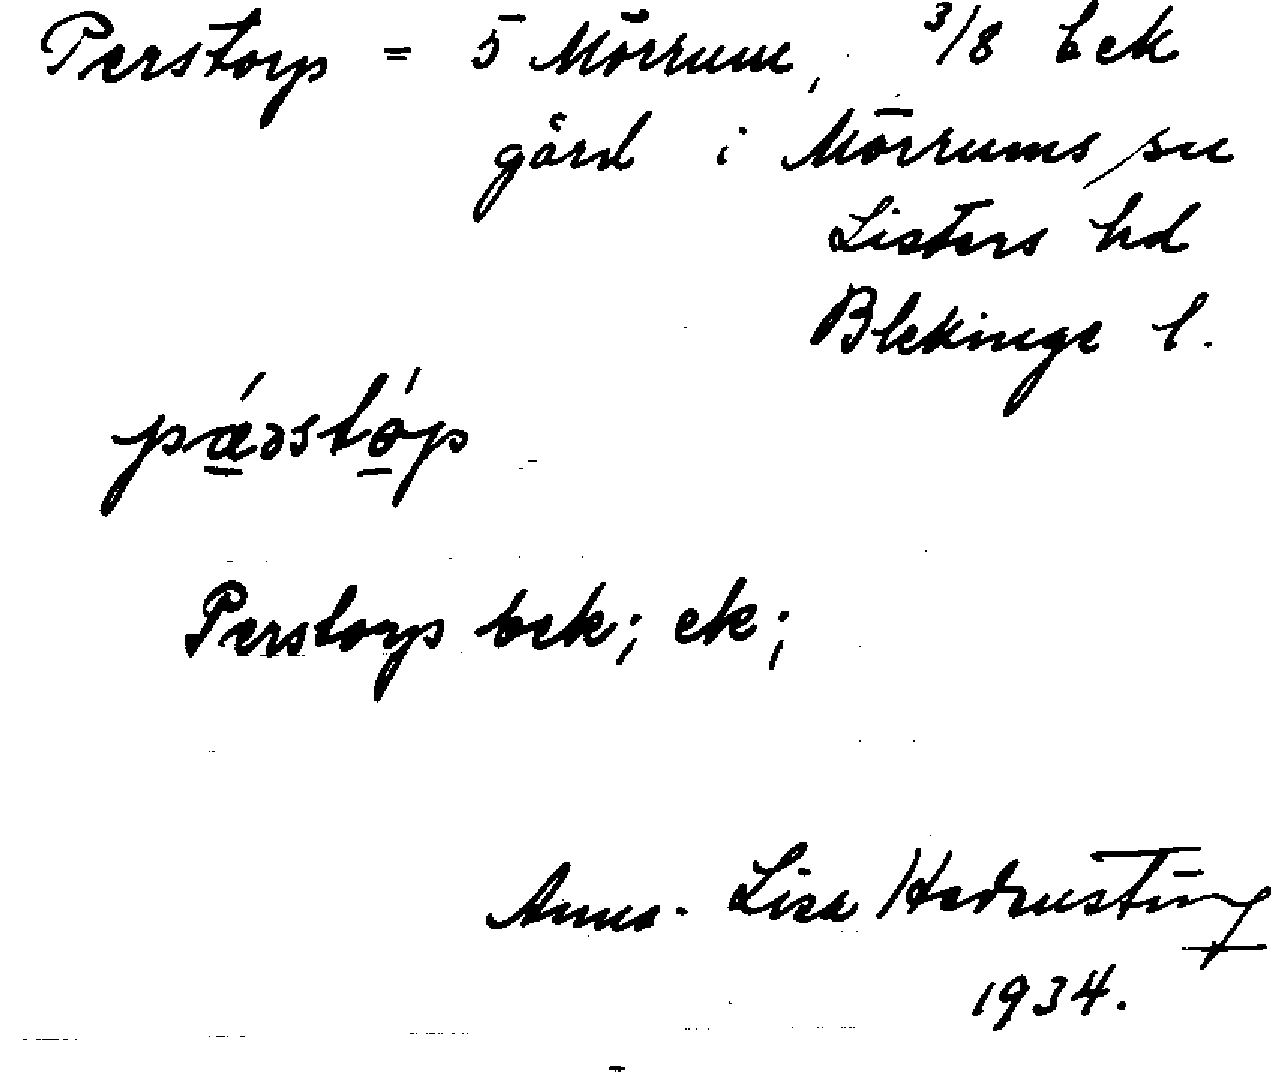 Perstorp = 5 Mörrum, 3/8 bek
gård i Mörrums sn
Listers hd
Blekinge l.
pǽəstóp
Perstorps bek; ek;
Anna-Lisa
1934.